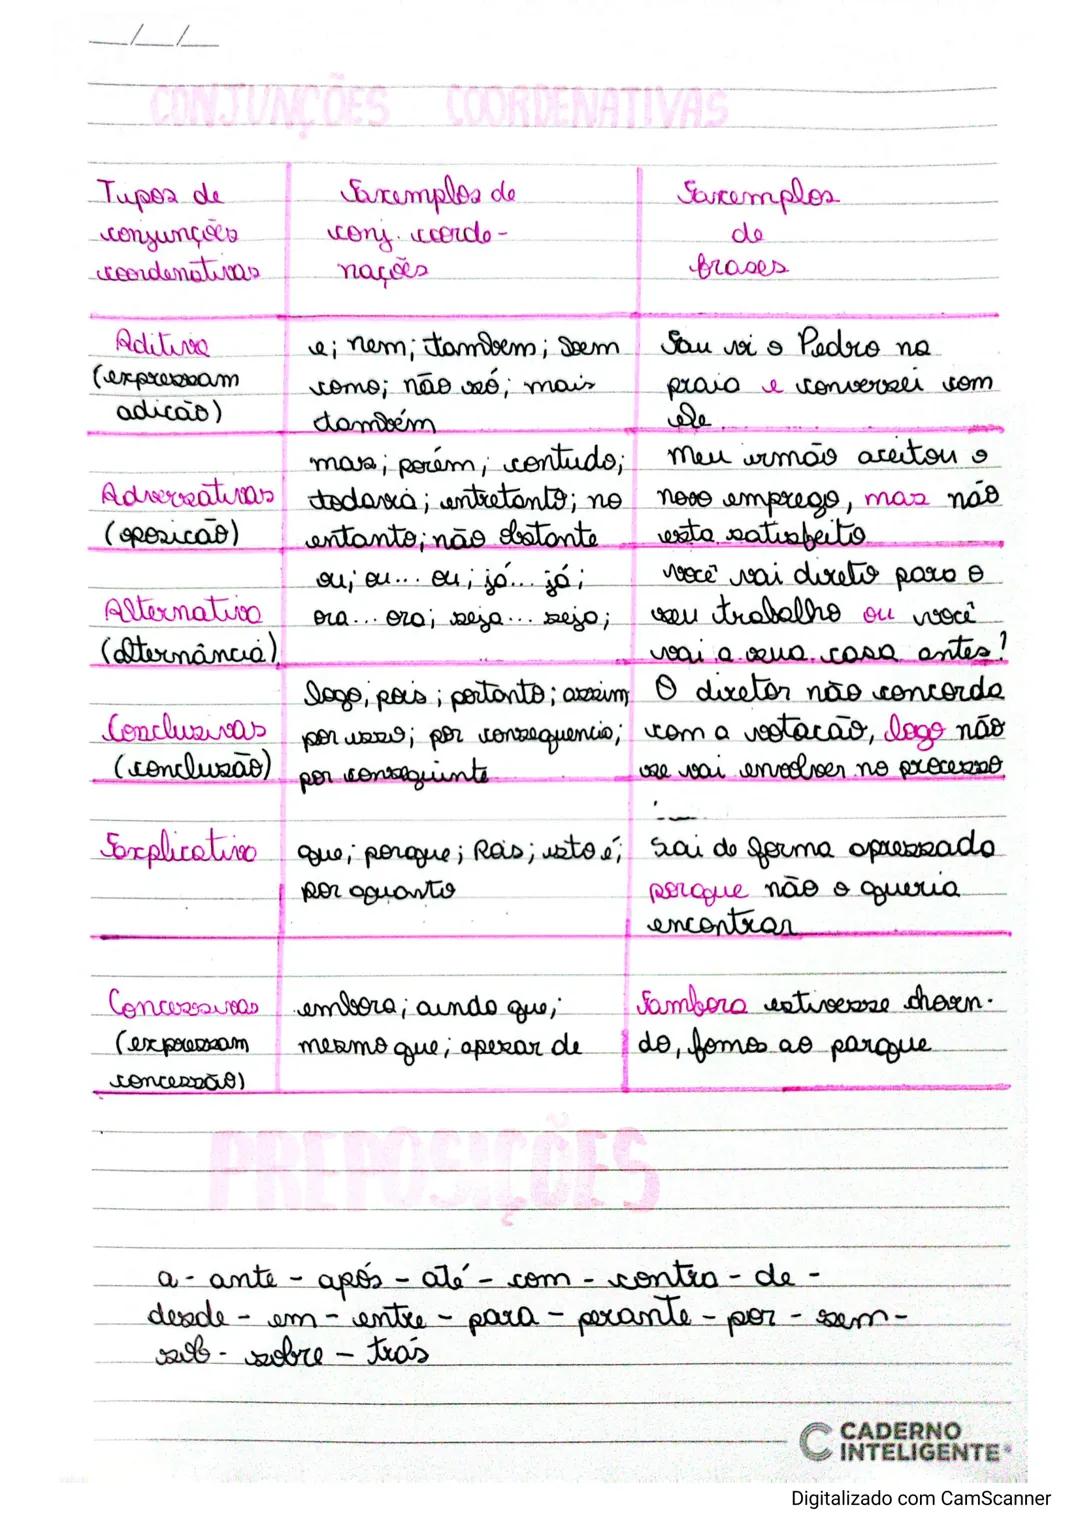 __/__/__
CONJUNÇÕES COORDENATIVAS
Tipos de
conjunções
coordenativas
Exemplos de
conj. coorde-
nações
Exemplos
de
frases
Aditiva
(expressam
adicão)
e; nem; também; bem
como; não só; mais
também
Eu vi o Pedro na
praia e conversei com
ele
Adversativas
(oposicão)
mas; porém; contudo;
todavia; entretanto; no
entanto; não obstante
Meu irmão aceitou o
novo emprego, mas não
esta satisfeito
Alternativa
(alternância)
ou; ou... ou; já... já;
ora... ora; seja... seja;
você vai direto para o
seu trabalho ou você
vai a sua casa antes?
Conclusivas
(conclusão)
logo; pois; portanto; assim
por isso; por consequencia;
por conseguinte
O diretor não concorda
com a votacão, logo não
se vai envolver no processo
Explicativa
que; porque; Pois; isto é;
por quanto
Sai de forma apressada
porque não o queria
encontrar
Concessivas
(expressam
concessão)
embora; ainda que;
mesmo que; apesar de
Embora estivesse choven-
do, fomos ao parque
PREPOSIÇÕES
a - ante - após - até - com - contra - de -
desde - em - entre - para - perante - por - sem -
sob - sobre - trás
CADERNO
INTELIGENTE
Digitalizado com CamScanner